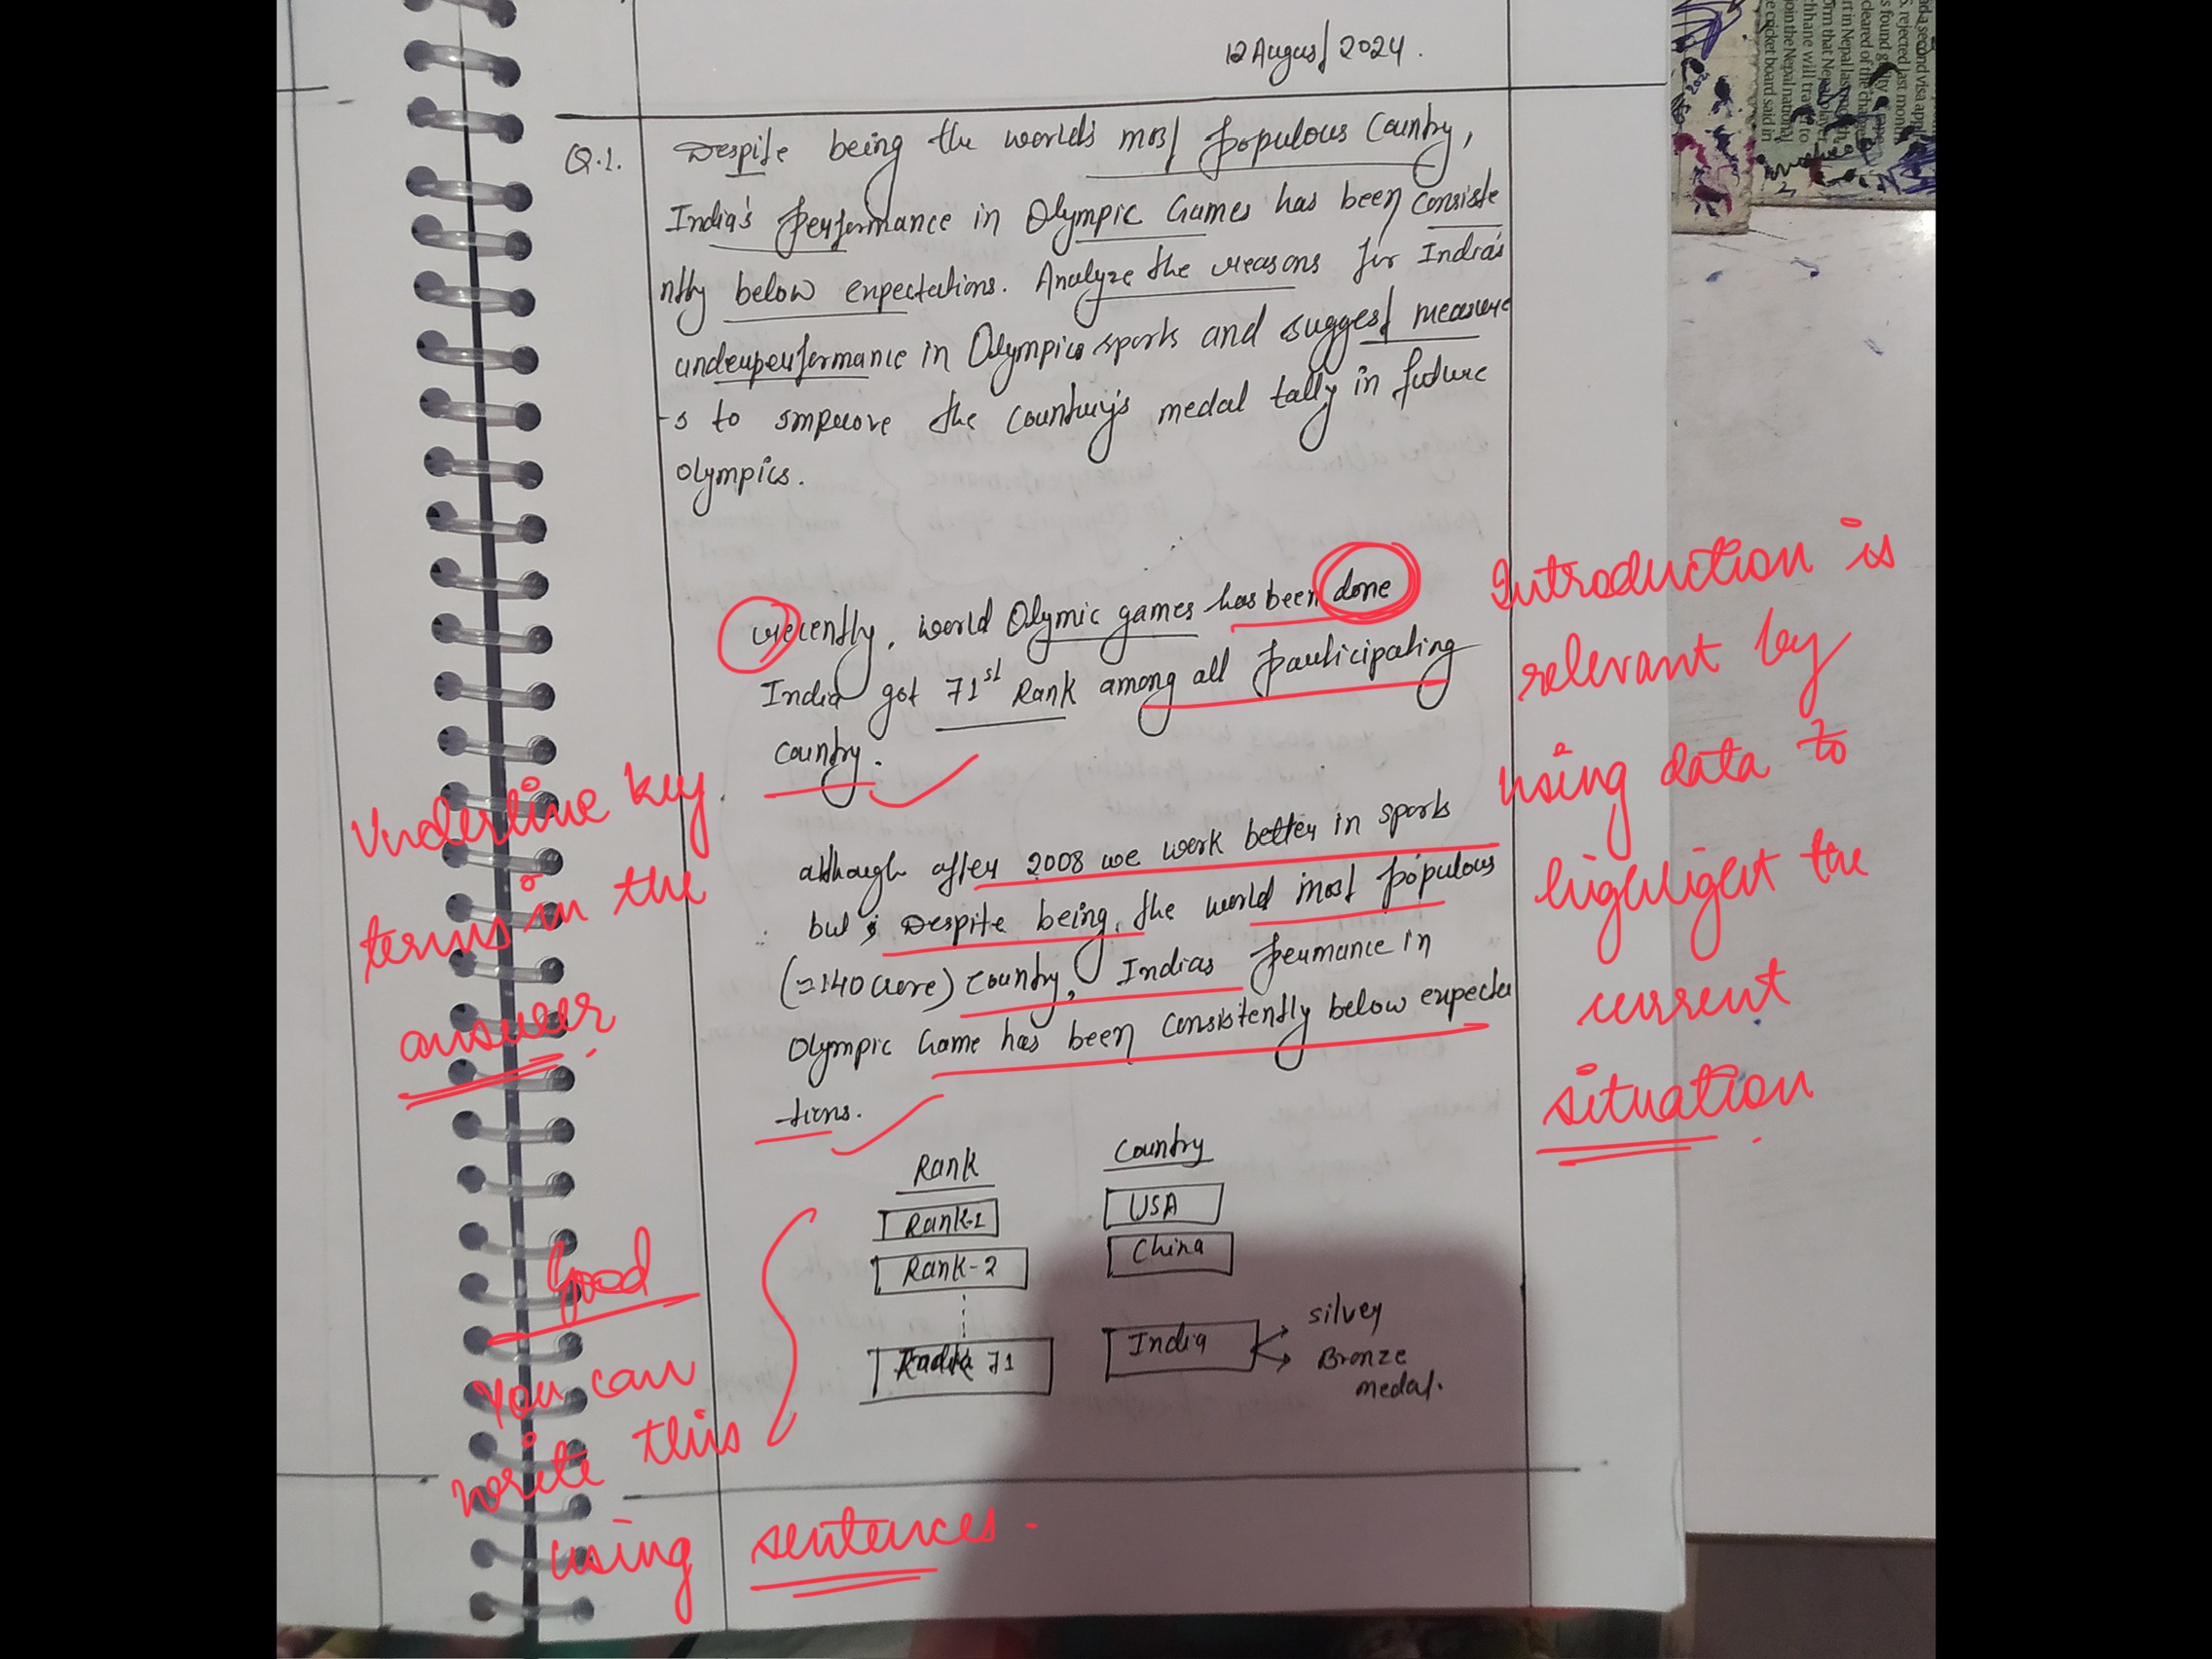 12 August 2024.
Q.1. Despite being the world's most populous Country,
India's performance in Olympic Games has been consiste
ntly below expectations. Analyze the reasons for India's
underperformance in Olympics sports and suggest measure
-s to improve the country's medal tally in future
Olympics.
recently, world Olymic games has been done
India got 71st Rank among all participating
country.
although after 2008 we work better in sports
but Despite being the world most populous
(≈140 crore) country, Indias permance in
Olympic Game has been consistently below expecta
-tions.
Rank Country
Rank-1 USA
Rank-2 China
71 India silver
Bronze
medal.
Introduction is
relevant by
using data to
highlight the
current
situation
Underline key
terms in the
answer
Good
You can
write this
using sentences.